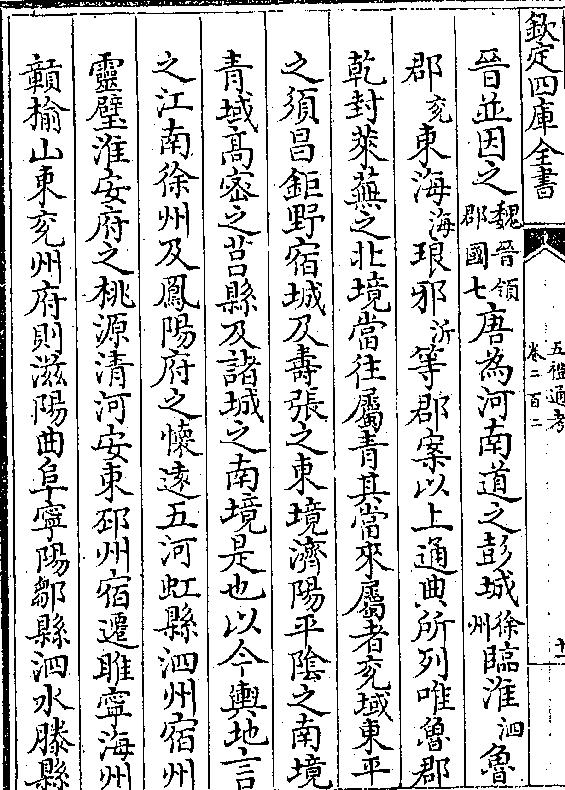 欽定四庫全書
五禮通考
卷二百二
晉並因之魏晉領郡國七唐為河南道之彭城徐州臨淮泗魯
郡兗東海海琅邪沂等郡案以上通典所列唯魯郡
乾封萊蕪之北境當往屬青其當來屬者兗域東平
之須昌鉅野宿城及壽張之東境濟陽平陰之南境
青域高密之莒縣及諸城之南境是也以今輿地言
之江南徐州及鳳陽府之懷遠五河虹縣泗州宿州
靈璧淮安府之桃源清河安東邳州宿遷睢寧海州
贛榆山東兗州府則滋陽曲阜寧陽鄒縣泗水滕縣